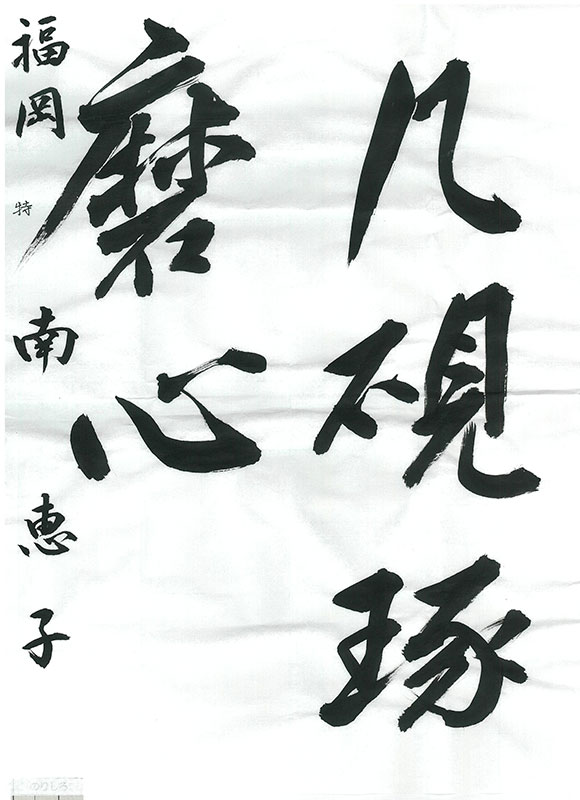 几硯琢
磨心
福岡 特 南 恵子
のりしろ